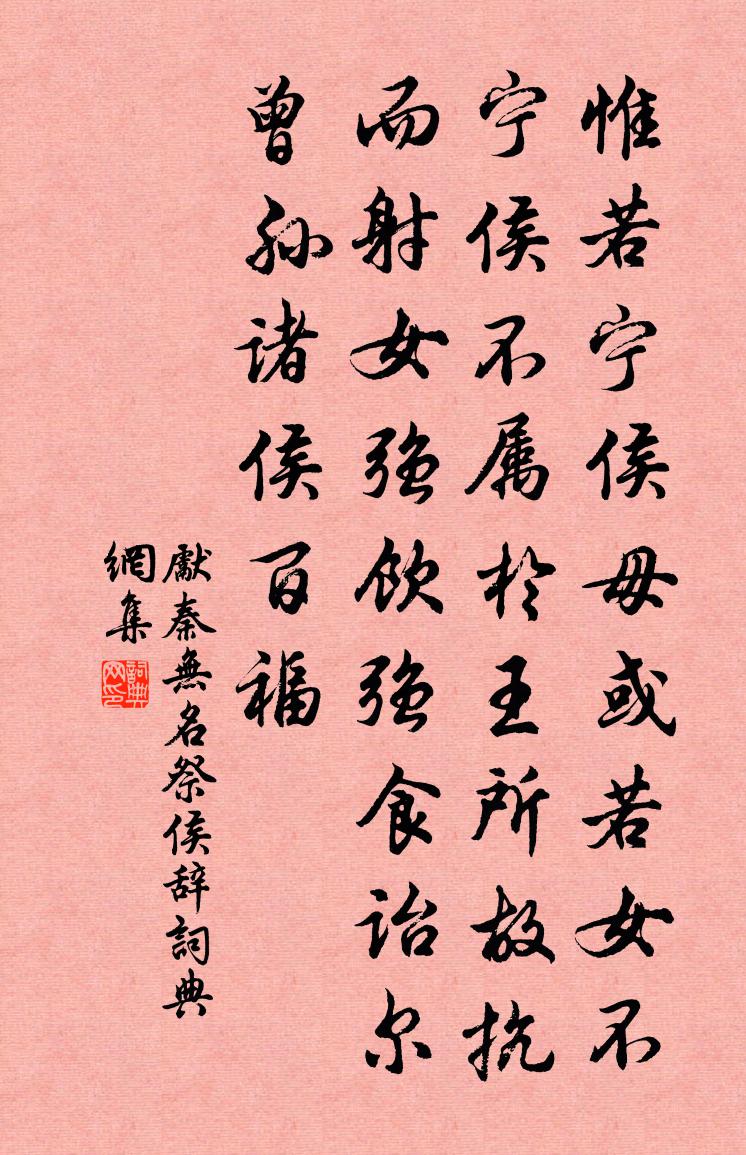 惟若宁侯毋或若女不
宁侯不属於王所故抗
而射女强饮强食诒尔
曾孙诸侯百福
獻秦無名祭侯辞詞典
網集
詞典
网印